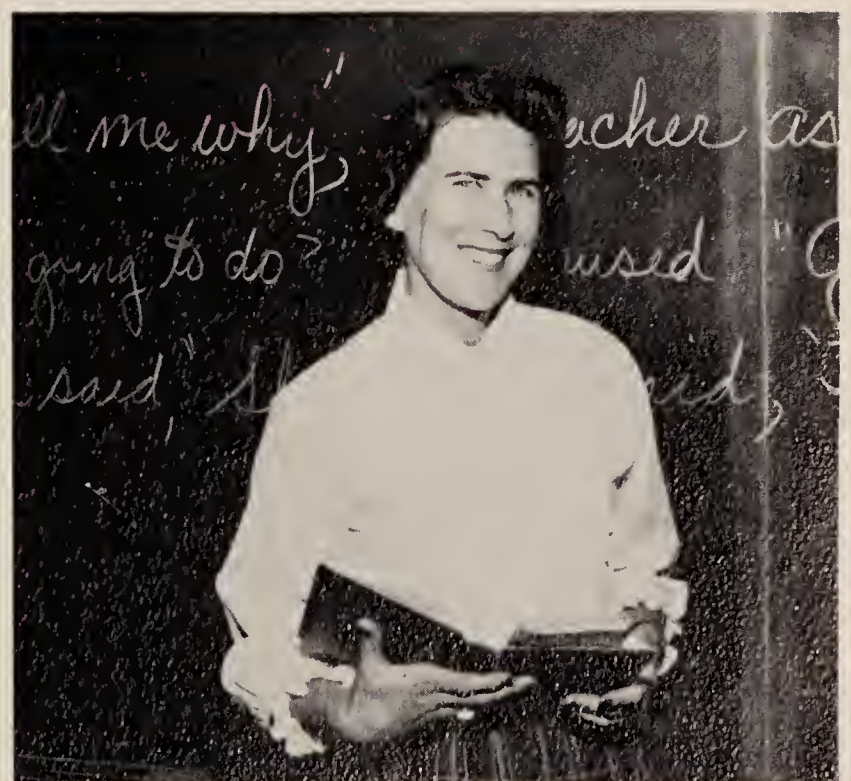 ll me why," acher as
going to do? used "
said, " S aid,